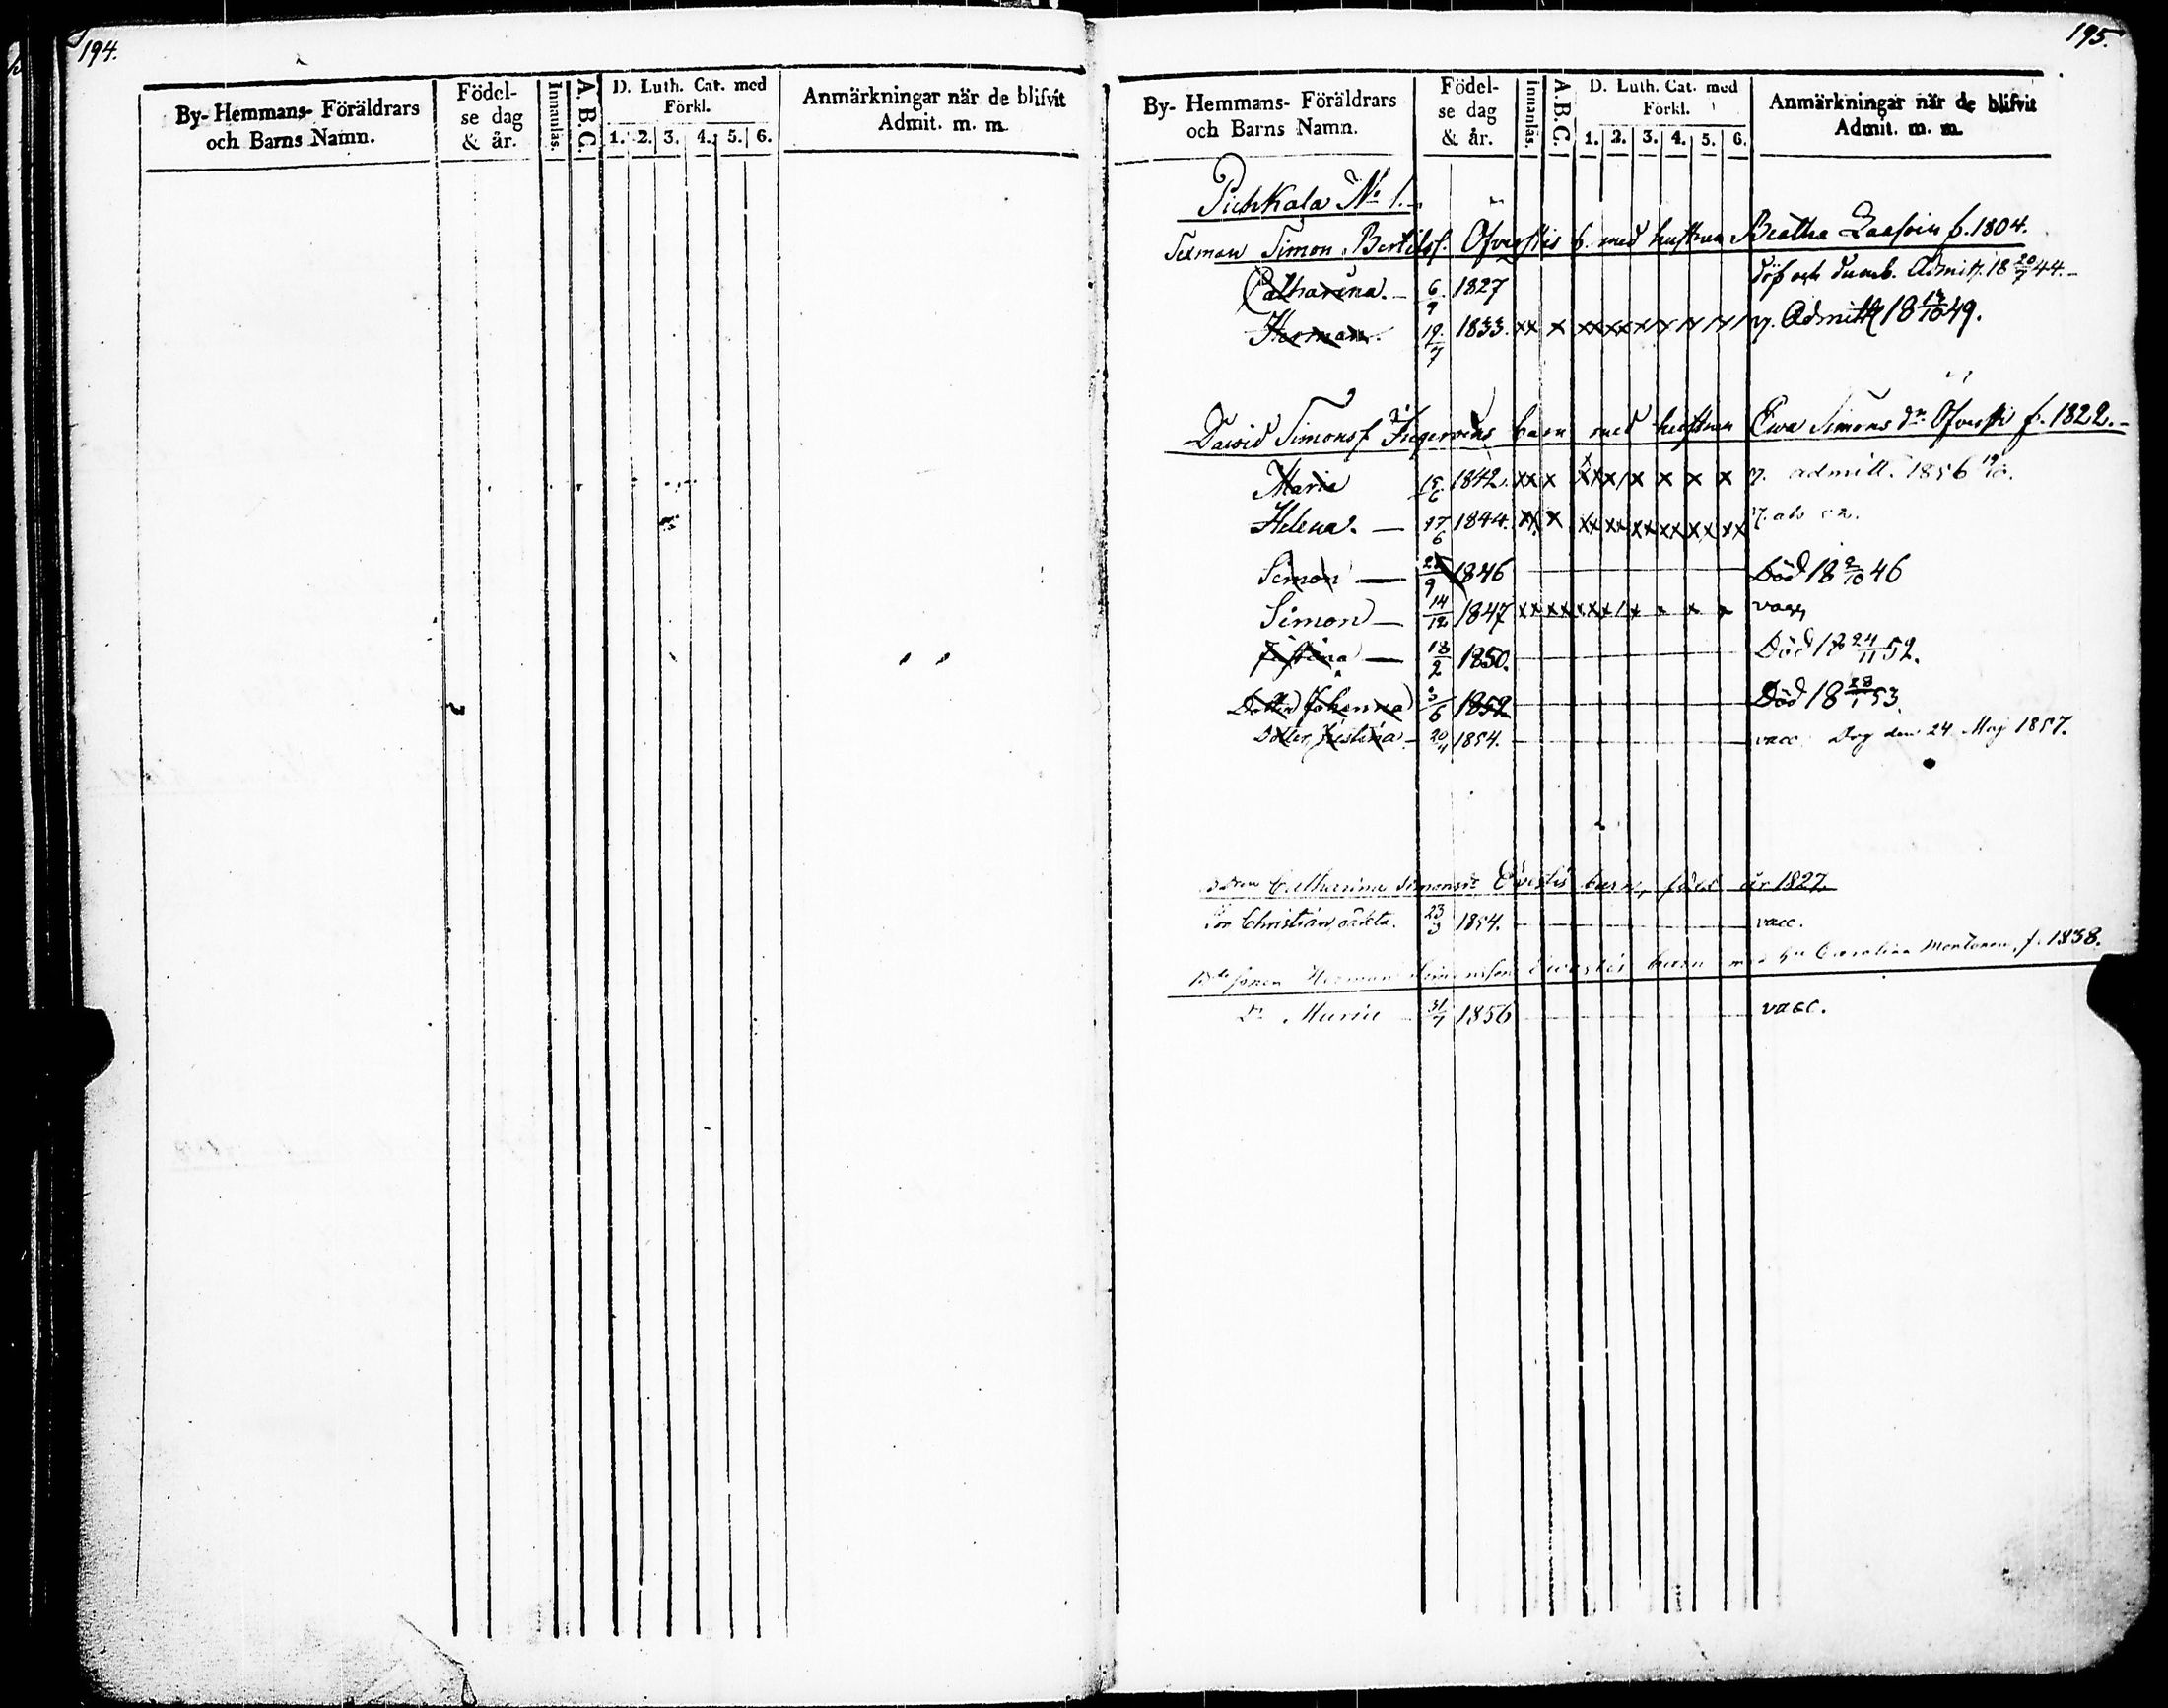 194.
By- Hemmans- Föräldrars och Barns Namn.
Födel-se dag & år.
Innanläs.
A. B. C.
D. Luth. Cat. med Förkl.
1. 2. 3. 4. 5. 6.
Anmärkningar när de blifvit Admit. m. m.
195.
By- Hemmans- Föräldrars och Barns Namn.
Födel-se dag & år.
Innanläs.
A. B. C.
D. Luth. Cat. med Förkl.
1. 2. 3. 4. 5. 6.
Anmärkningar när de blifvit Admit. m. m.
Pichkala No 1.
Simon Bertilsf. b. med hustrun Beatha f. 1804.
Catharina. 6/9 1827 döf och dumb. Admitt. 18 20/7 44.
Herman. 19/7 1833. xx x Admitt 18 /10 49.
David Simonsf. barn med hustrun Ewa Simons dr f. 1822.
Maria 15/6 1842. xx x x x x x admitt. 1856
Helena. 17/6 1844. xx x xx xx xx xx x x xx
Simon 9 1846 Död 18 2/10 46
Simon 14/12 1847 vacc
18/2 1850. Död 18 24/11 52.
Dotter Johanna 3/6 1852 Död 18 28/1 53.
Dotter Kristina 20/11 1854. vacc Dog den 24 Maj 1857.
Catharina Simonsdr barn, född år 1827.
Son Christian oäkta. 23/3 1854. vacc.
Herman barn med Carolina f. 1838.
Dr Maria 31/7 1856 vacc.